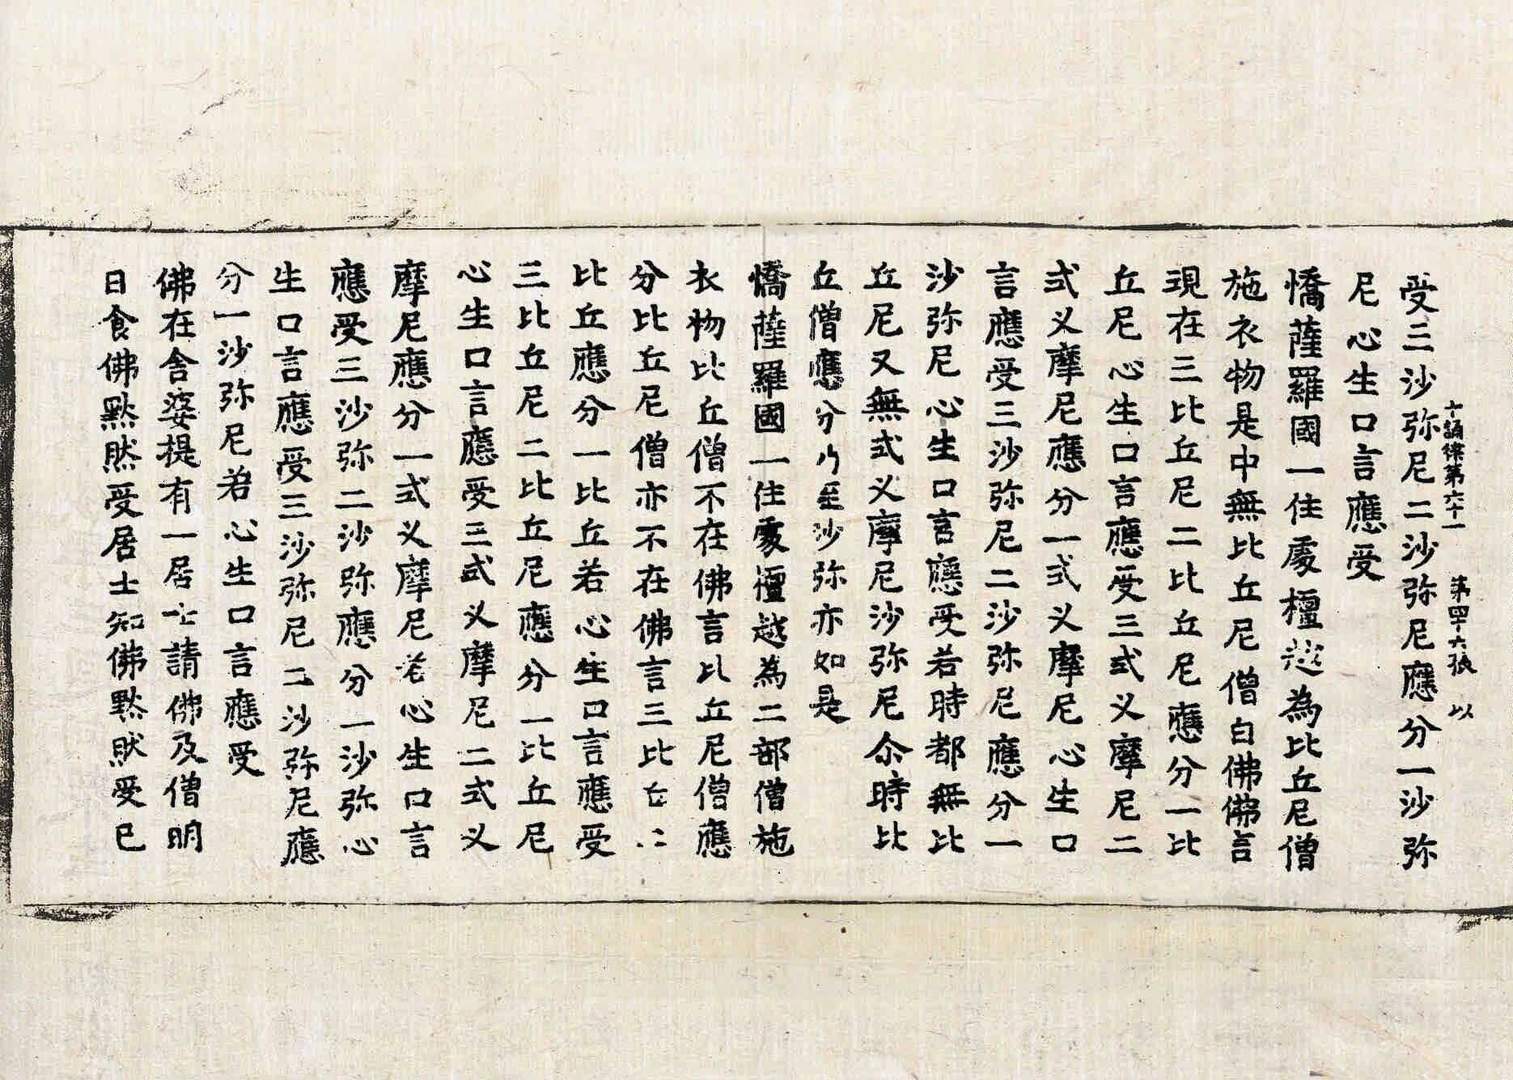 十誦律第六十一 第四十六張 以
受三沙弥尼二沙弥尼應分一沙弥
尼心生口言應受
憍薩羅國一住處檀越為比丘尼僧
施衣物是中無比丘尼僧白佛佛言
現在三比丘尼二比丘尼應分一比
丘尼心生口言應受三式义摩尼二
式义摩尼應分一式义摩尼心生口
言應受三沙弥尼二沙弥尼應分一
沙弥尼心生口言應受若時都無比
丘尼又無式义摩尼沙弥尼尒時比
丘僧應分乃至沙弥亦如是
憍薩羅國一住處檀越為二部僧施
衣物比丘僧不在佛言比丘尼僧應
分比丘尼僧亦不在佛言三比丘二
比丘應分一比丘若心生口言應受
三比丘尼二比丘尼應分一比丘尼
心生口言應受三式义摩尼二式义
摩尼應分一式义摩尼若心生口言
應受三沙弥二沙弥應分一沙弥心
生口言應受三沙弥尼二沙弥尼應
分一沙弥尼若心生口言應受
佛在舍婆提有一居士請佛及僧明
日食佛黙然受居士知佛黙然受已